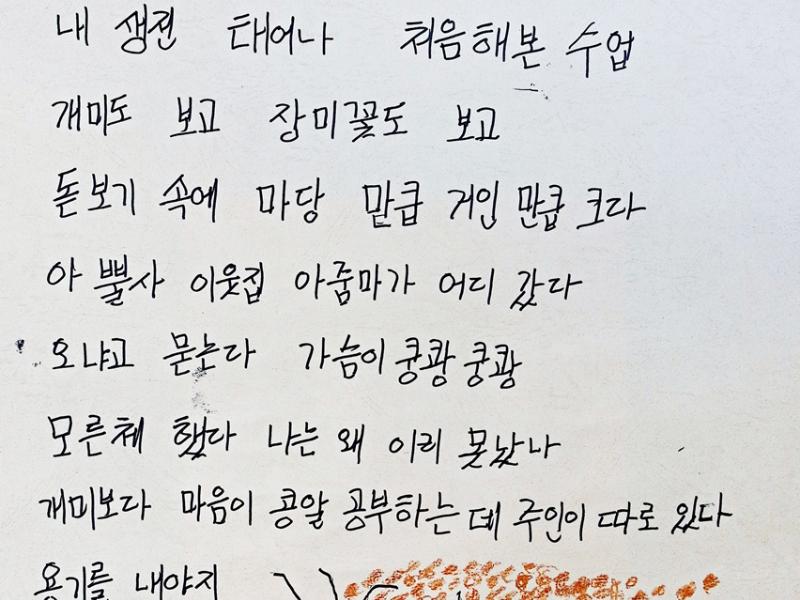 내 생견 태어나 처음해본 수업
개미도 보고 장미꽃도 보고
돋보기 속에 마당 맡큽 거인 만큽 크다
아 뿔사 이웃집 아줌마가 어디 갔다
오냐고 묻는다 가슴이 쿵쾅 쿵쾅
모른체 했다 나는 왜 이리 못났나
개미보다 마음이 콩알 공부하는 데 주인이 따로 있다
용기를 내야지